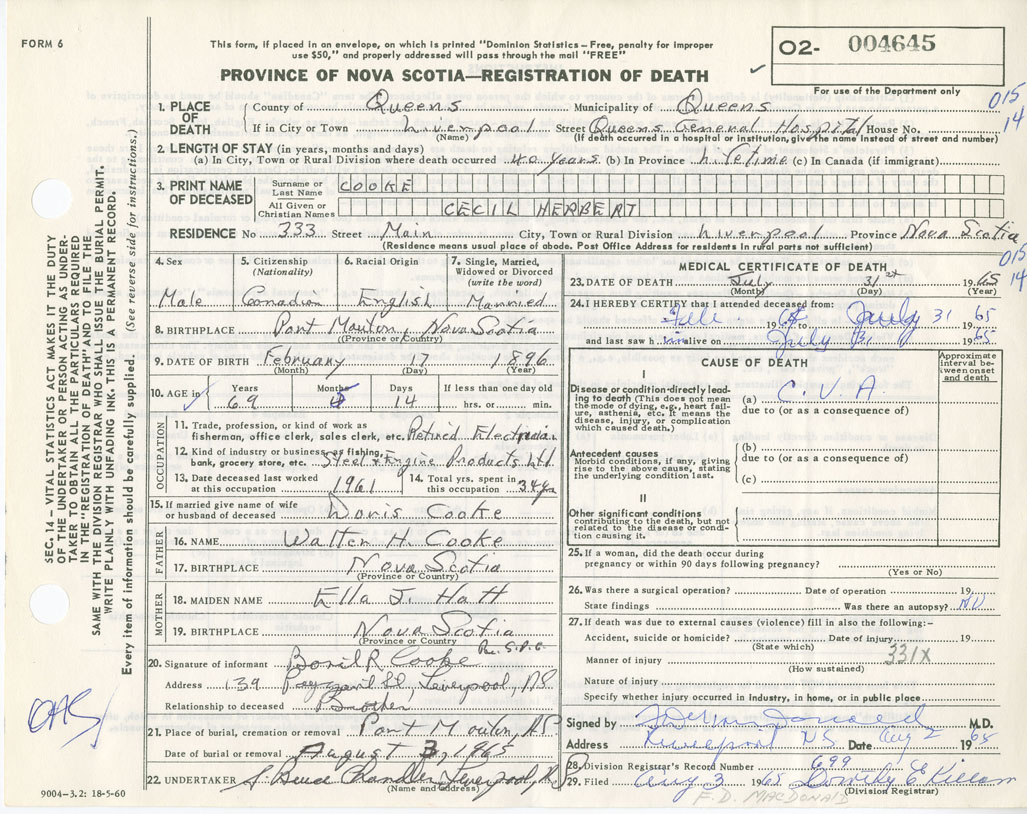 FORM 6
This form, if placed in an envelope, on which is printed "Dominion Statistics – Free, penalty for improper
use $50," and properly addressed will pass through the mail "FREE"
PROVINCE OF NOVA SCOTIA—REGISTRATION OF DEATH
O2- 004645
For use of the Department only
015
14
1. PLACE OF DEATH
County of Queens Municipality of Queens
If in City or Town Liverpool Street Queens General Hospital House No.
(Name) (If death occurred in a hospital or institution, give the name instead of street and number)
2. LENGTH OF STAY (in years, months and days)
(a) In City, Town or Rural Division where death occurred 40 years (b) In Province lifetime (c) In Canada (if immigrant)
3. PRINT NAME OF DECEASED
Surname or Last Name COOKE
All Given or Christian Names CECIL HERBERT
RESIDENCE No 333 Street Main City, Town or Rural Division Liverpool Province Nova Scotia
(Residence means usual place of abode. Post Office Address for residents in rural parts not sufficient)
015
14
4. Sex Male
5. Citizenship (Nationality) Canadian
6. Racial Origin English
7. Single, Married, Widowed or Divorced (write the word) Married
8. BIRTHPLACE Port Mouton, Nova Scotia
(Province or Country)
9. DATE OF BIRTH February 17 1896
(Month) (Day) (Year)
10. AGE in Years Months Days If less than one day old
69 14 hrs. or min.
OCCUPATION
11. Trade, profession, or kind of work as
fisherman, office clerk, sales clerk, etc. Retired Electrician
12. Kind of industry or business, as fishing,
bank, grocery store, etc. Steel & Engine Products Ltd
13. Date deceased last worked at this occupation 1961
14. Total yrs. spent in this occupation 34 yrs
15. If married give name of wife or husband of deceased Doris Cooke
FATHER
16. NAME Walter H. Cooke
17. BIRTHPLACE Nova Scotia
(Province or Country)
MOTHER
18. MAIDEN NAME Ella J. Hatt
19. BIRTHPLACE Nova Scotia
(Province or Country)
20. Signature of informant R. Cooke
Address 139 Liverpool, N.S.
Relationship to deceased Brother
21. Place of burial, cremation or removal Port Mouton, N.S.
Date of burial or removal August 3, 1965
22. UNDERTAKER Chandler, Liverpool, N.S.
(Name and address)
9004-3.2: 18-5-60
MEDICAL CERTIFICATE OF DEATH
23. DATE OF DEATH July 31st 1965
(Month) (Day) (Year)
24. I HEREBY CERTIFY that I attended deceased from:
19 65 July 31 19 65
and last saw him alive on July 31 19 65
CAUSE OF DEATH
Approximate interval between onset and death
I
Disease or condition directly leading to death (This does not mean the mode of dying, e.g., heart failure, asthenia, etc. It means the disease, injury, or complication which caused death.)
(a) C.V.A.
due to (or as a consequence of)
Antecedent causes
Morbid conditions, if any, giving rise to the above cause, stating the underlying condition last.
(b)
due to (or as a consequence of)
(c)
II
Other significant conditions
contributing to the death, but not related to the disease or condition causing it.
25. If a woman, did the death occur during
pregnancy or within 90 days following pregnancy?
(Yes or No)
26. Was there a surgical operation? Date of operation 19
State findings Was there an autopsy? No
27. If death was due to external causes (violence) fill in also the following:-
Accident, suicide or homicide? Date of injury 19
(State which)
Manner of injury 331X
(How sustained)
Nature of injury
Specify whether injury occurred in industry, in home, or in public place
Signed by M.D.
Address Liverpool N.S. Date Aug 2 19 65
28. Division Registrar's Record Number 699
29. Filed Aug 3 1965 Dorothy E Killam
(Division Registrar)
F.D. MACDONALD
SEC. 14 – VITAL STATISTICS ACT MAKES IT THE DUTY
OF THE UNDERTAKER OR PERSON ACTING AS UNDER-
TAKER TO OBTAIN ALL THE PARTICULARS REQUIRED
IN THE "REGISTRATION OF DEATH" AND TO FILE THE
SAME WITH THE DIVISION REGISTRAR WHO SHALL ISSUE THE BURIAL PERMIT.
WRITE PLAINLY WITH UNFADING INK.-THIS IS A PERMANENT RECORD.
Every item of information should be carefully supplied. (See reverse side for instructions.)